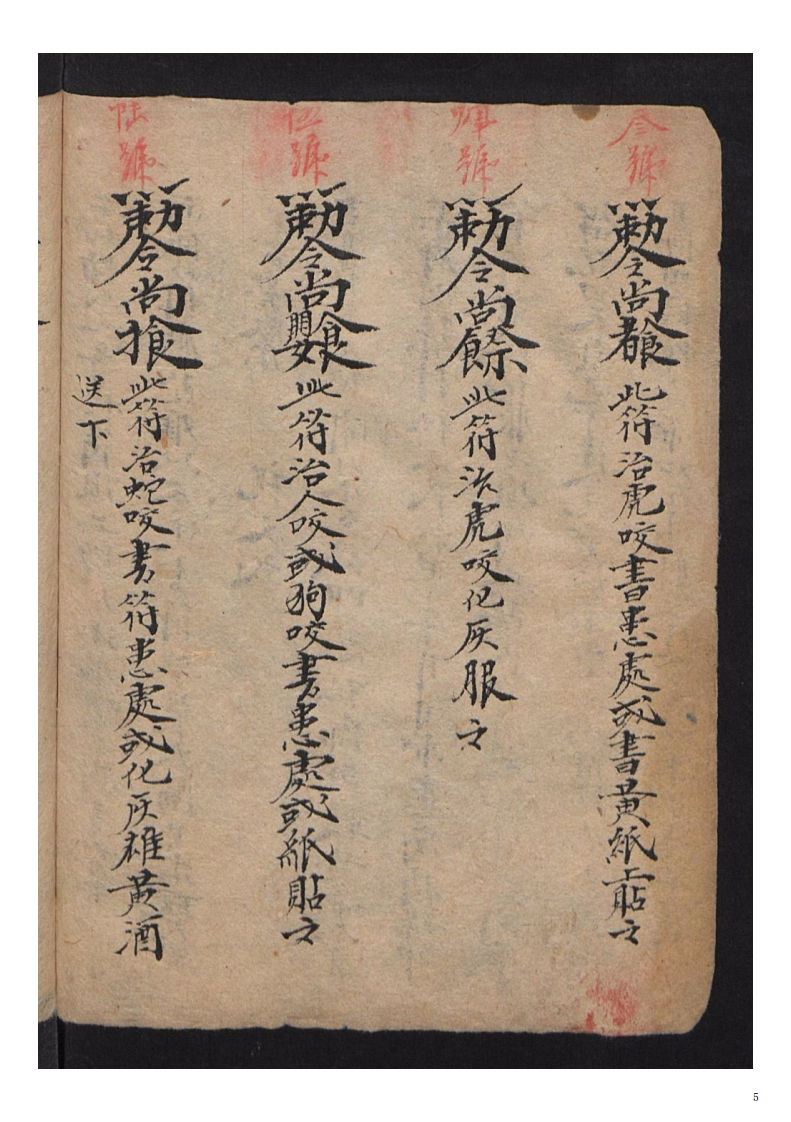 叁號
勅令尚 此符治虎咬書患處或書黄紙上貼之
肆號
勅令尚 此符治虎咬化灰服之
伍號
勅令尚 此符治人咬或狗咬書患處或紙貼之
陆號
勅令尚 此符治蛇咬書符患處或化灰雄黄酒
送下
5